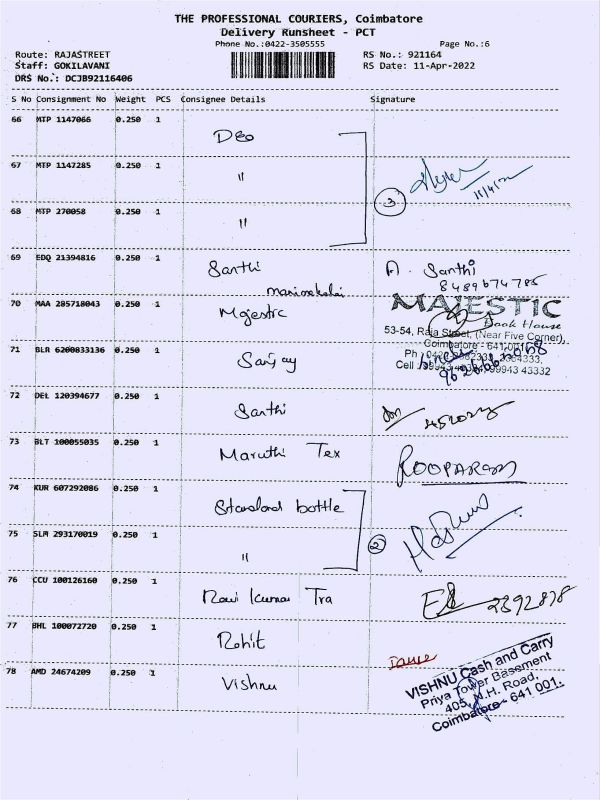 THE PROFESSIONAL COURIERS, Coimbatore
Delivery Runsheet - PCT
Phone No.:0422-3505555 Page No.:6
Route: RAJASTREET RS No.: 921164
Staff: GOKILAVANI RS Date: 11-Apr-2022
DRS No.: DCJB92116406
S No Consignment No Weight PCS Consignee Details Signature
66 MTP 1147066 0.250 1 Deo
67 MTP 1147285 0.250 1 "
68 MTP 270058 0.250 1 " 3
69 EDQ 21394816 0.250 1 Santhi A. Santhi
manimekalai 8489674785
70 MAA 285718043 0.250 1 Majestic MAJESTIC
Book House
53-54, Raja Street, (Near Five Corner),
Coimbatore - 641 001.
71 BLR 6200833136 0.250 1 Sanjay
72 DEL 120394677 0.250 1 Santhi
73 BLT 100055035 0.250 1 Maruthi Tex ROOPARAM
74 KUR 607292086 0.250 1 Standard bottle
75 SLM 293170019 0.250 1 " 2
76 CCU 100126160 0.250 1 Ravi Kumar Tra 2392878
77 BHL 100072720 0.250 1 Rohit
78 AMD 24674209 0.250 1 Vishnu
VISHNU Cash and Carry
Priya Tower Basement
405, N.H. Road,
Coimbatore - 641 001.